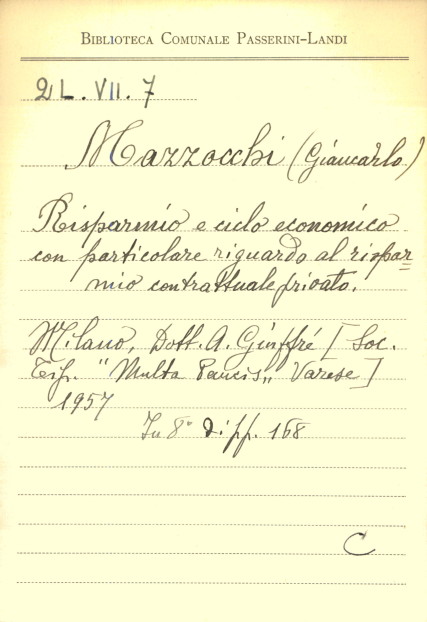 BIBLIOTECA COMUNALE PASSERINI-LANDI
2L.VII.7
Mazzocchi (Giancarlo)
Risparmio e ciclo economico
con particolare riguardo al rispar=
mio contrattuale privato.
Milano, Dott. A. Giuffré [Soc.
Tip. "Multa Paucis„ Varese]
1957
In 8° di pp. 168
C